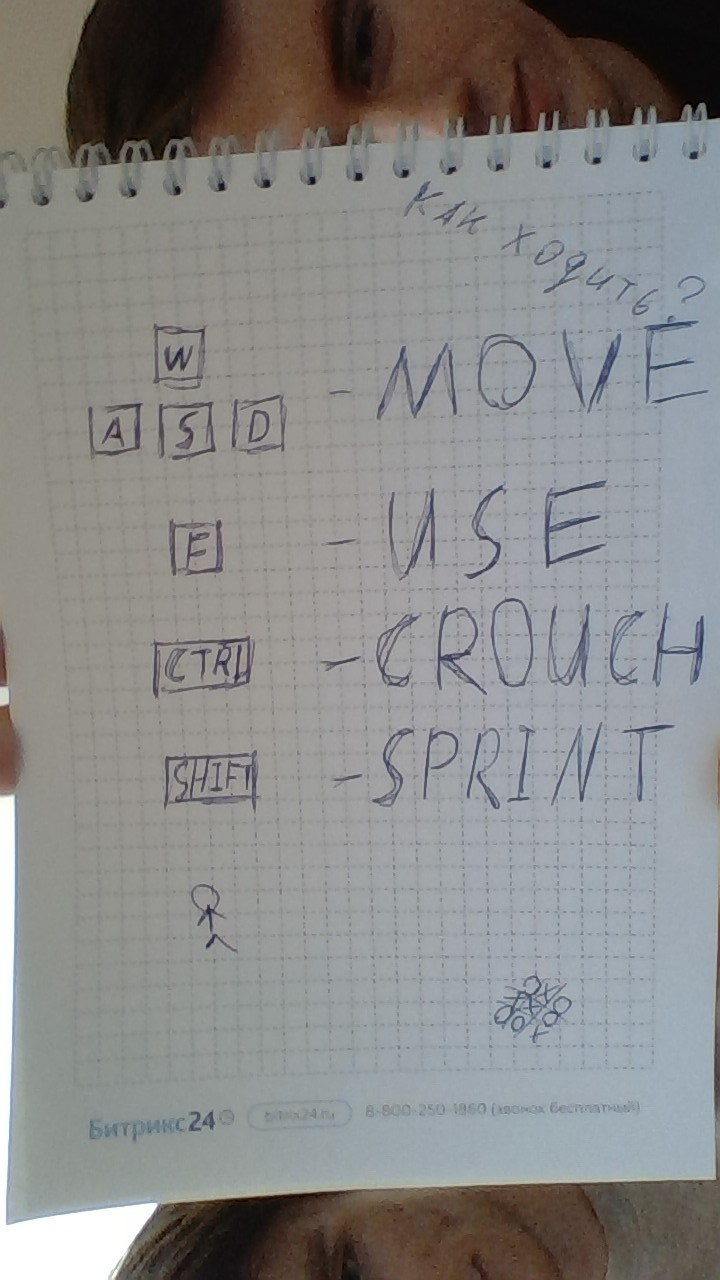 как ходить?
W
A S D - MOVE
E - USE
CTRL - CROUCH
SHIFT - SPRINT
Битрикс24 bitrix24.ru 8-800-250-1860 (звонок бесплатный)